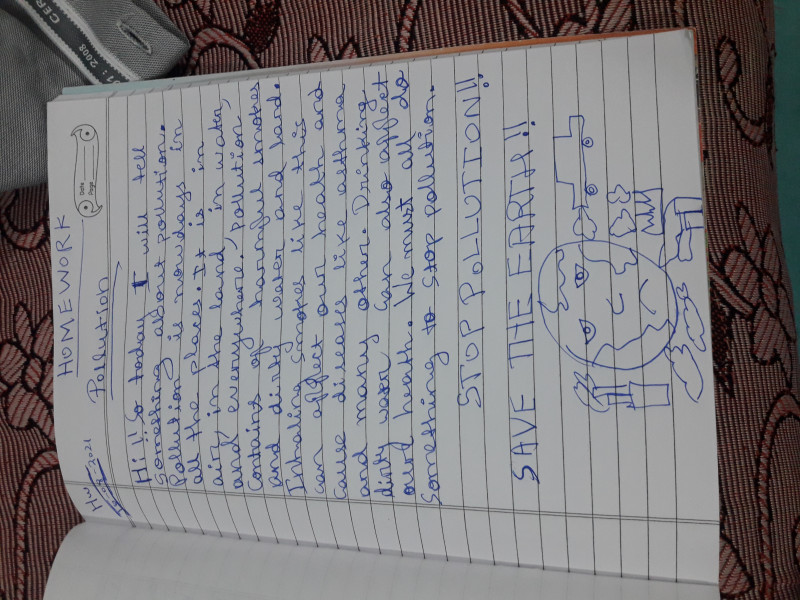 HOMEWORK
Date
Page
H.W
2021
Pollution
Hi!! So today I will tell
Something about pollution.
Pollution is nowdays in
all the places. It is in
air, in the land, in water,
and everywhere. Pollution
Contains of harmful smokes
and dirty water and land.
Inhaling smokes like this
can affect our health and
cause diseases like asthma
and many other. Drinking
dirty water can also affect
our heath. We must all do
Something to Stop pollution.
STOP POLLUTION!!
SAVE THE EARTH!!
CER
: 2008